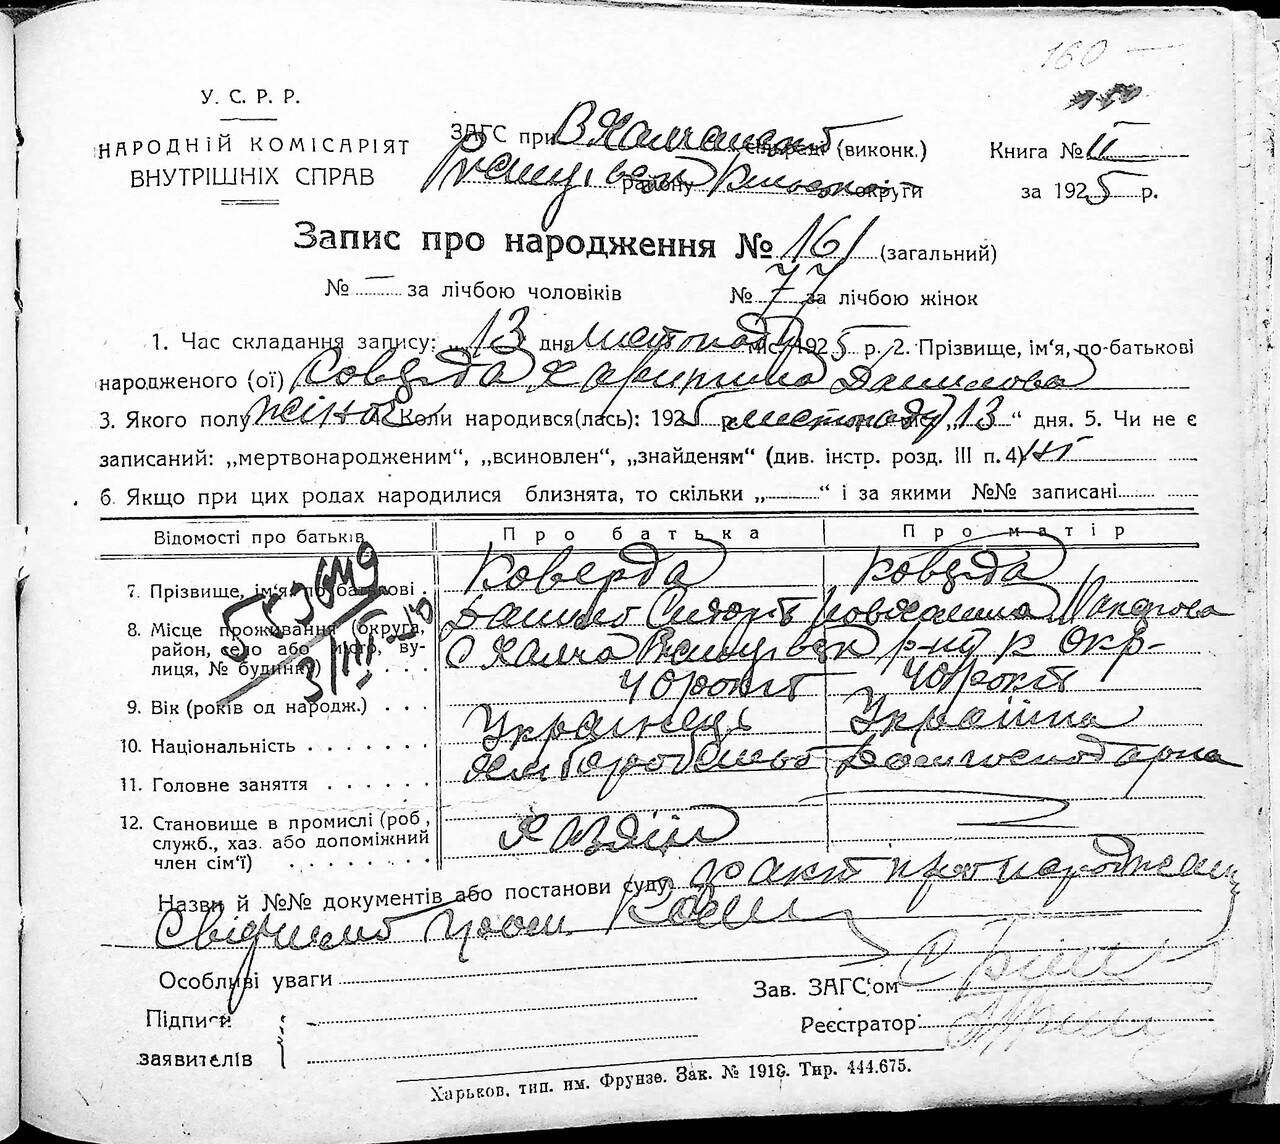 160 —
У. С. Р. Р.
НАРОДНІЙ КОМІСАРІЯТ
ВНУТРІШНІХ СПРАВ
ЗАГС при (виконк.)
району округи
Книга № II
за 1925 р.
Запис про народження № 161 (загальний)
№ — за лічбою чоловіків № 77 за лічбою жінок
1. Час складання запису: „ 13 дня листопаду міс. 1925 р. 2. Прізвище, ім'я, по-батькові
народженого (ої) Коверда Харитина Данилова
3. Якого полу жіноч 4. Коли народився(лась): 1925 р. листопаду міс. „ 13 “ дня. 5. Чи не є
записаний: „мертвонародженим“, „всиновлен“, „знайденям“ (див. інстр. розд. III п. 4) ні
6. Якщо при цих родах народилися близнята, то скільки „ “ і за якими №№ записані
Відомості про батьків Про батька Про матір
7. Прізвище, ім'я, по-батькові Коверда Коверда
Данило
8. Місце проживання (округа,
район, село або місто, ву-
лиця, № будинк. с Халча р-ну К Окр-
9. Вік (років од народж.) 40 років 40 років
10. Національність Українець Українка
11. Головне заняття Домгосподарка
12. Становище в промислі (роб.,
служб., хаз. або допоміжний
член сім'ї) Хазяїн
Назви й №№ документів або постанови суду факт про народжен
Свідчимо
Особливі уваги
Зав. ЗАГС'ом
Підписи
Реєстратор
заявителів
Харьков, тип. им. Фрунзе. Зак. № 1918. Тир. 444.675.